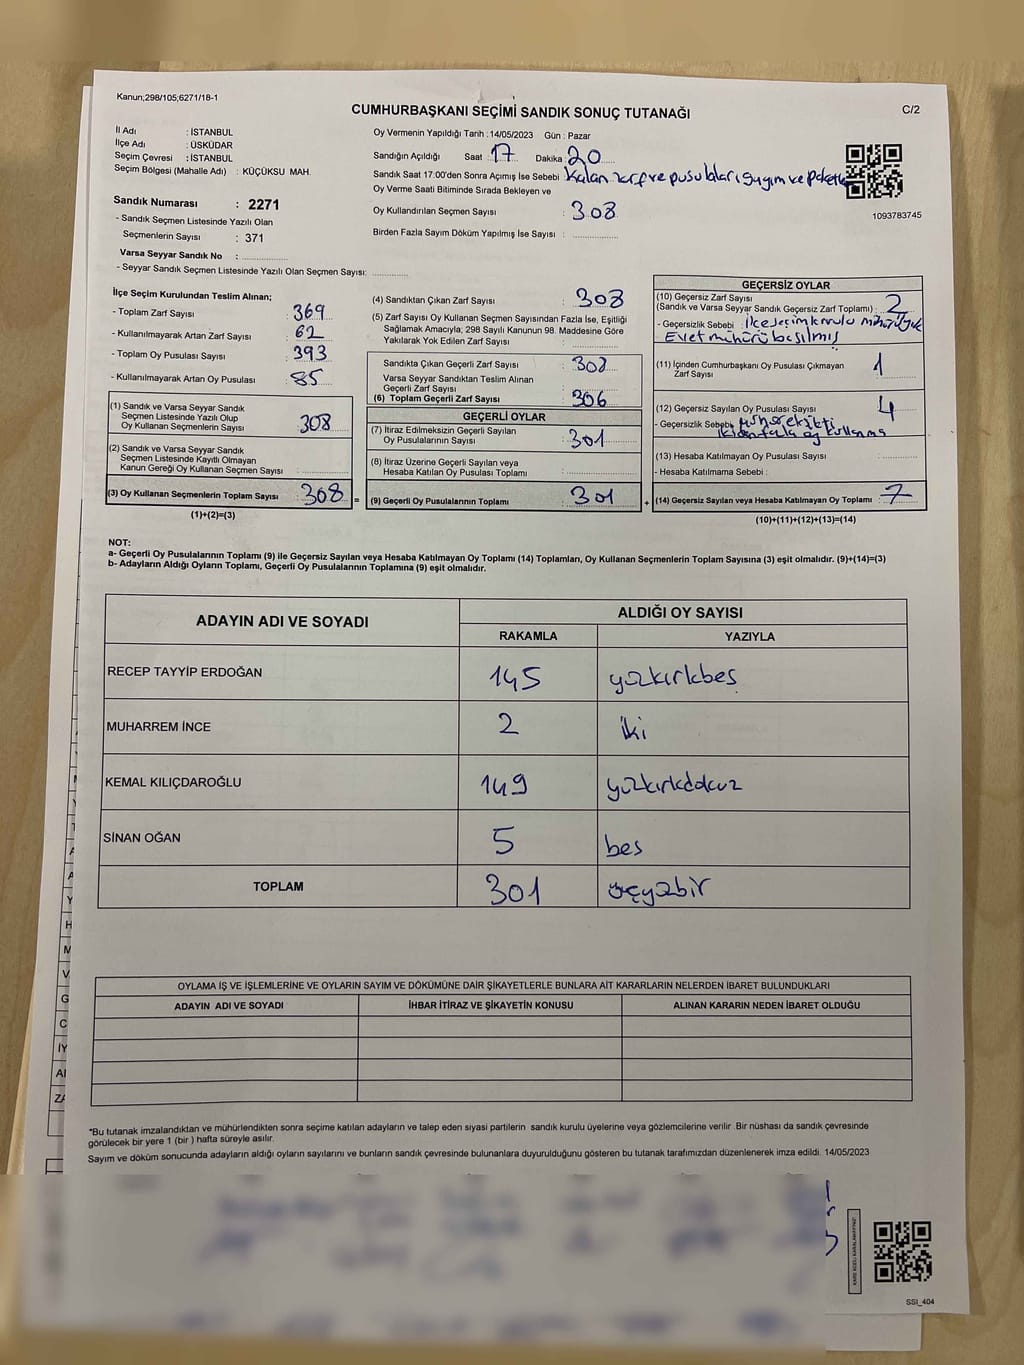 Kanun;298/105;6271/18-1
CUMHURBAŞKANI SEÇİMİ SANDIK SONUÇ TUTANAĞI
C/2
İl Adı : İSTANBUL
İlçe Adı : ÜSKÜDAR
Seçim Çevresi : İSTANBUL
Seçim Bölgesi (Mahalle Adı) : KÜÇÜKSU MAH.
Sandık Numarası : 2271
- Sandık Seçmen Listesinde Yazılı Olan
Seçmenlerin Sayısı : 371
Varsa Seyyar Sandık No :
- Seyyar Sandık Seçmen Listesinde Yazılı Olan Seçmen Sayısı:
Oy Vermenin Yapıldığı Tarih : 14/05/2023 Gün : Pazar
Sandığın Açıldığı Saat : 17 Dakika : 20
Sandık Saat 17:00'den Sonra Açımış İse Sebebi : Kalan zarf ve pusulaları, sayım ve
Oy Verme Saati Bitiminde Sırada Bekleyen ve
Oy Kullandırılan Seçmen Sayısı : 308
Birden Fazla Sayım Döküm Yapılmış İse Sayısı :
1093783745
İlçe Seçim Kurulundan Teslim Alınan;
- Toplam Zarf Sayısı : 369
- Kullanılmayarak Artan Zarf Sayısı : 62
- Toplam Oy Pusulası Sayısı : 393
- Kullanılmayarak Artan Oy Pusulası : 85
(1) Sandık ve Varsa Seyyar Sandık
Seçmen Listesinde Yazılı Olup
Oy Kullanan Seçmenlerin Sayısı : 308
(2) Sandık ve Varsa Seyyar Sandık
Seçmen Listesinde Kayıtlı Olmayan
Kanun Gereği Oy Kullanan Seçmen Sayısı :
(3) Oy Kullanan Seçmenlerin Toplam Sayısı : 308 =
(1)+(2)=(3)
(4) Sandıktan Çıkan Zarf Sayısı : 308
(5) Zarf Sayısı Oy Kullanan Seçmen Sayısından Fazla İse, Eşitliği
Sağlamak Amacıyla; 298 Sayılı Kanunun 98. Maddesine Göre
Yakılarak Yok Edilen Zarf Sayısı :
Sandıkta Çıkan Geçerli Zarf Sayısı :
Varsa Seyyar Sandıktan Teslim Alınan
Geçerli Zarf Sayısı :
(6) Toplam Geçerli Zarf Sayısı : 306
GEÇERLİ OYLAR
(7) İtiraz Edilmeksizin Geçerli Sayılan
Oy Pusulasının Sayısı : 301
(8) İtiraz Üzerine Geçerli Sayılan veya
Hesaba Katılan Oy Pusulası Toplamı :
(9) Geçerli Oy Pusulalarının Toplamı : 301 +
GEÇERSİZ OYLAR
(10) Geçersiz Zarf Sayısı
(Sandık ve Varsa Seyyar Sandık Geçersiz Zarf Toplamı) : 2
- Geçersizlik Sebebi : ilçe seçim kurulu mühürü yok
Evet mühürü basılmış
(11) İçinden Cumhurbaşkanı Oy Pusulası Çıkmayan
Zarf Sayısı : 1
(12) Geçersiz Sayılan Oy Pusulası Sayısı : 4
- Geçersizlik Sebebi :
ikiden fazla oy kullanma
(13) Hesaba Katılmayan Oy Pusulası Sayısı :
- Hesaba Katılmama Sebebi :
(14) Geçersiz Sayılan veya Hesaba Katılmayan Oy Toplamı : 7
(10)+(11)+(12)+(13)=(14)
NOT:
a- Geçerli Oy Pusulalarının Toplamı (9) ile Geçersiz Sayılan veya Hesaba Katılmayan Oy Toplamı (14) Toplamları, Oy Kullanan Seçmenlerin Toplam Sayısına (3) eşit olmalıdır. (9)+(14)=(3)
b- Adayların Aldığı Oyların Toplamı, Geçerli Oy Pusulalarının Toplamına (9) eşit olmalıdır.
ADAYIN ADI VE SOYADI
ALDIĞI OY SAYISI
RAKAMLA YAZIYLA
RECEP TAYYİP ERDOĞAN 145 yüzkırkbeş
MUHARREM İNCE 2 iki
KEMAL KILIÇDAROĞLU 149 yüzkırkdokuz
SİNAN OĞAN 5 beş
TOPLAM 301 üçyüzbir
OYLAMA İŞ VE İŞLEMLERİNE VE OYLARIN SAYIM VE DÖKÜMÜNE DAİR ŞİKAYETLERLE BUNLARA AİT KARARLARIN NELERDEN İBARET BULUNDUKLARI
ADAYIN ADI VE SOYADI İHBAR İTİRAZ VE ŞİKAYETİN KONUSU ALINAN KARARIN NEDEN İBARET OLDUĞU
*Bu tutanak imzalandıktan ve mühürlendikten sonra seçime katılan adayların ve talep eden siyasi partilerin sandık kurulu üyelerine veya gözlemcilerine verilir .Bir nüshası da sandık çevresinde
görülecek bir yere 1 (bir ) hafta süreyle asılır.
Sayım ve döküm sonucunda adayların aldığı oyların sayılarını ve bunların sandık çevresinde bulunanlara duyurulduğunu gösteren bu tutanak tarafımızdan düzenlenerek imza edildi. 14/05/2023
SSI_404